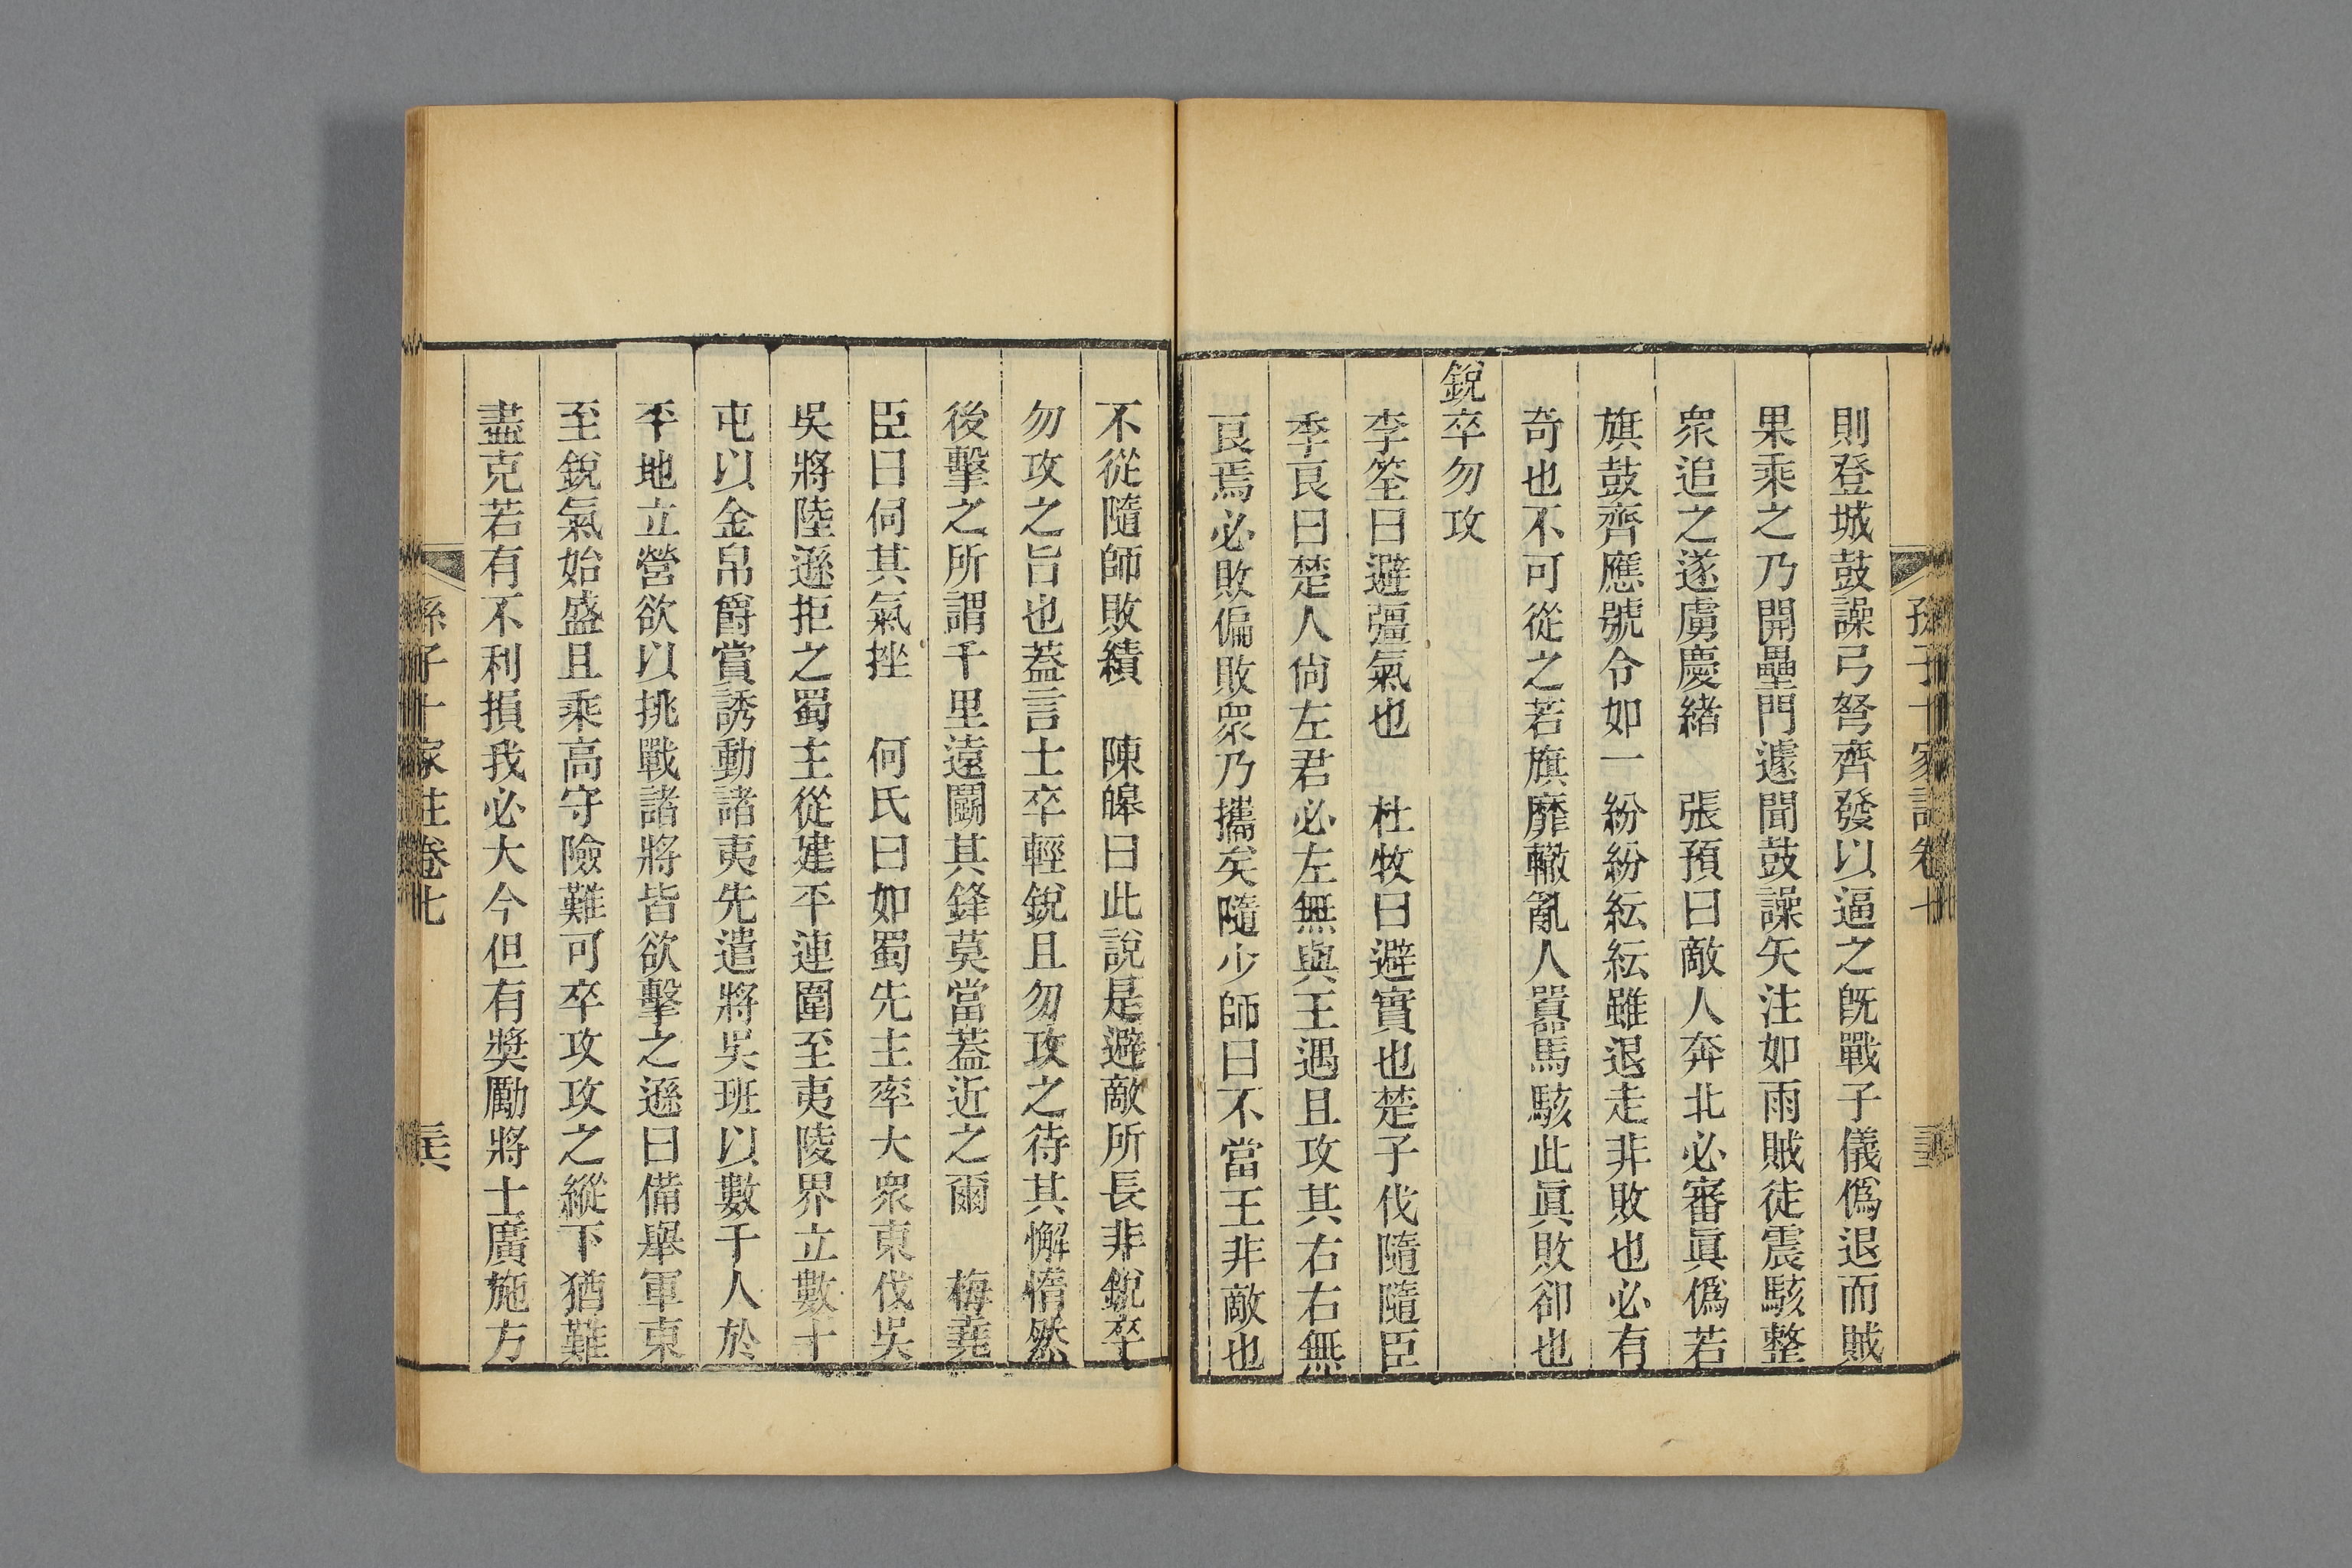 孫子十家註卷七
則登城鼓譟弓弩齊發以逼之旣戰子儀僞退而賊
果乘之乃開壘門遽聞鼓譟矢注如雨賊徒震駭整
衆追之遂虜慶緖　張預曰敵人奔北必審眞僞若
旗鼓齊應號令如一紛紛紜紜雖退走非敗也必有
奇也不可從之若旗靡轍亂人囂馬駭此眞敗卻也
銳卒勿攻
李筌曰避彊氣也　杜牧曰避實也楚子伐隨隨臣
季良曰楚人尙左君必左無與王遇且攻其右右無
良焉必敗偏敗衆乃攜矣隨少師曰不當王非敵也
不從隨師敗績　陳皥曰此說是避敵所長非銳卒
勿攻之旨也蓋言士卒輕銳且勿攻之待其懈惰然
後擊之所謂千里遠鬭其鋒莫當蓋近之爾　梅堯
臣曰伺其氣挫　何氏曰如蜀先主率大衆東伐吳
吳將陸遜拒之蜀主從建平連圍至夷陵界立數十
屯以金帛爵賞誘動諸夷先遣將吳班以數千人於
平地立營欲以挑戰諸將皆欲擊之遜曰備舉軍東
至銳氣始盛且乘高守險難可卒攻攻之縱下猶難
盡克若有不利損我必大今但有奬勵將士廣施方
孫子十家註卷七